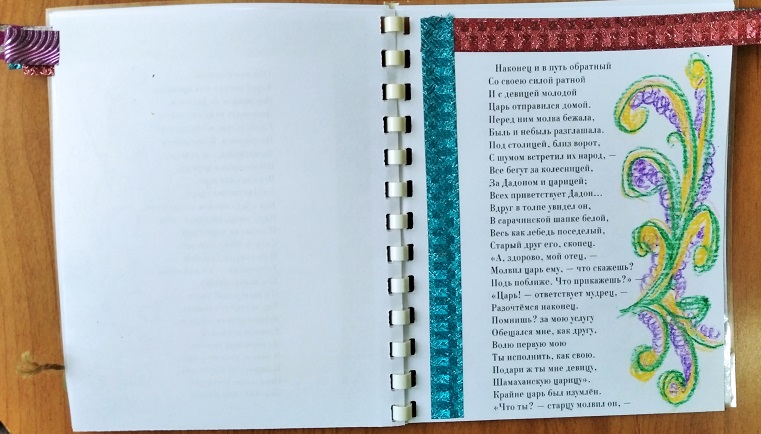 Наконец и в путь обратный
Со своею силой ратной
И с девицей молодой
Царь отправился домой.
Перед ним молва бежала,
Быль и небыль разглашала.
Под столицей, близ ворот,
С шумом встретил их народ, —
Все бегут за колесницей,
За Дадоном и царицей;
Всех приветствует Дадон...
Вдруг в толпе увидел он,
В сарачинской шапке белой,
Весь как лебедь поседелый,
Старый друг его, скопец.
«А, здорово, мой отец, —
Молвил царь ему, — что скажешь?
Подь поближе. Что прикажешь?» —
«Царь! — ответствует мудрец, —
Разочтёмся наконец.
Помнишь? за мою услугу
Обещался мне, как другу,
Волю первую мою
Ты исполнить, как свою.
Подари ж ты мне девицу,
Шамаханскую царицу».
Крайне царь был изумлён.
«Что ты? — старцу молвил он, —